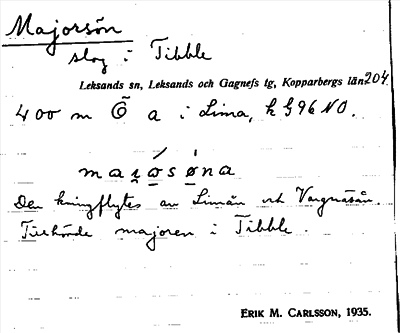 Majorsön
slog i Tibble
Leksands sn, Leksands och Gagnefs tg, Kopparbergs län 204
400 m Ö a i Lima, k G96 NO.
maɪ̯o̱sø̱na
Den kringflytes av Limån och Vargnäsån.
Tillhörde majoren i Tibble.
ERIK M. CARLSSON, 1935.